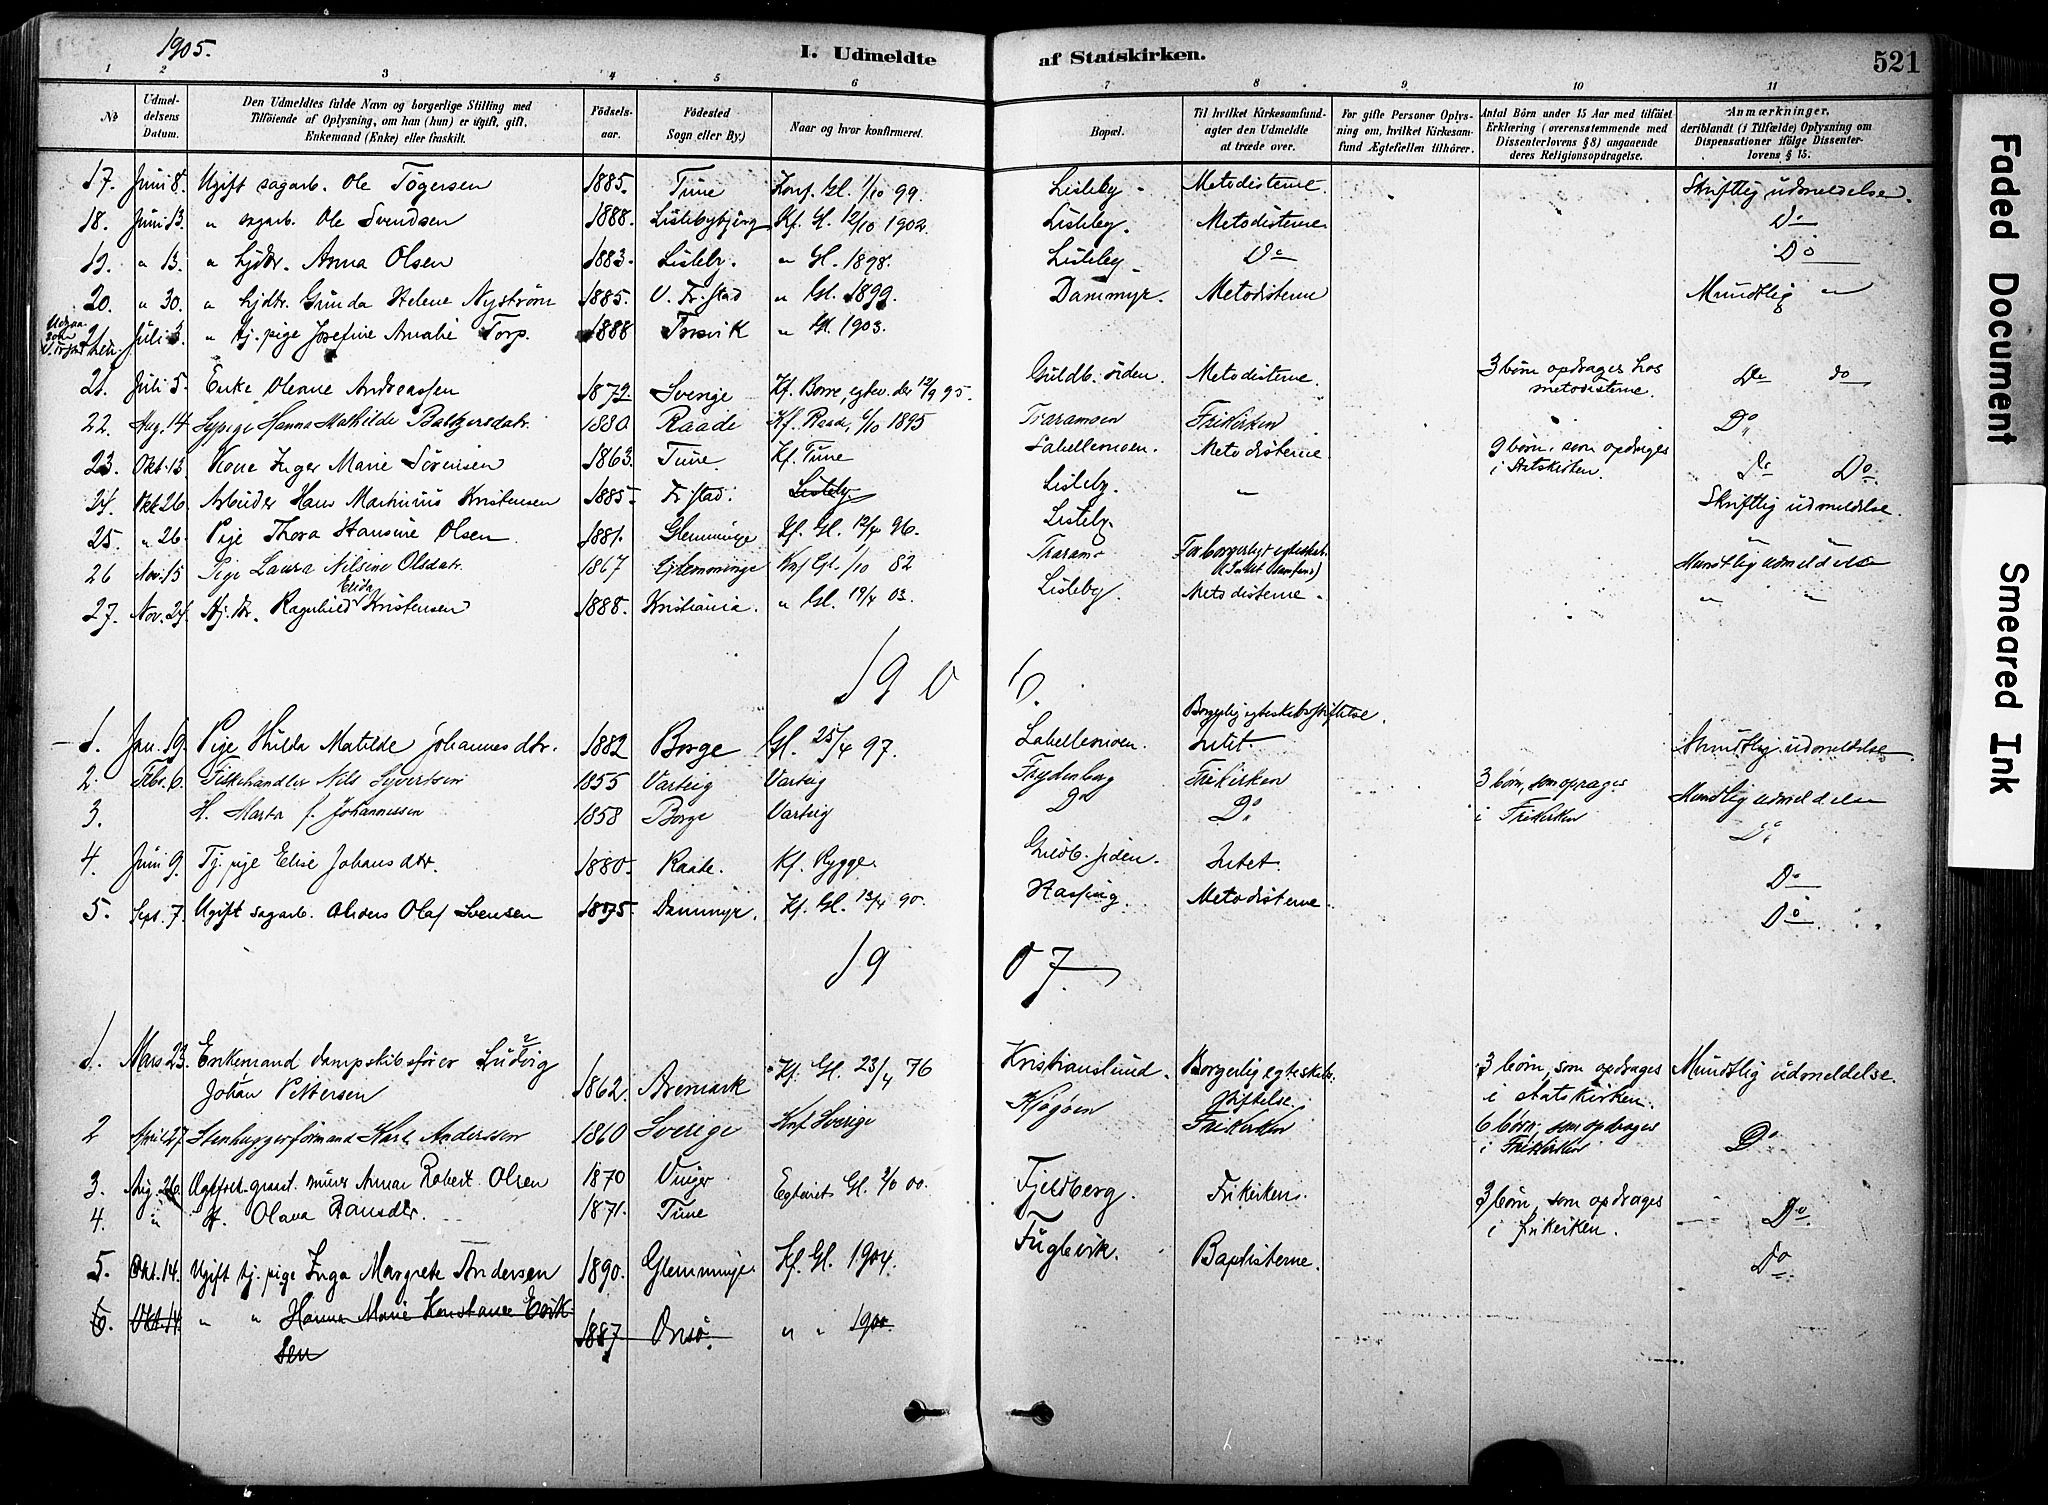 1905.
I. Udmeldte af Statskirken.
521
1 2 3 4 5 6 7 8 9 10 11
No
Udmeldelsens Datum.
Den Udmeldtes fulde Navn og borgerlige Stilling med Tilføiende af Oplysning, om han (hun) er ugift, gift, Enkemand (Enke) eller fraskilt.
Fødselsaar.
Fødested Sogn eller By.)
Naar og hvor konfirmeret.
Bopæl.
Til hvilket Kirkesamfund agter den Udmeldte at træde over.
For gifte Personer Oplysning om, hvilket Kirkesamfund Ægtefællen tilhører.
Antal Børn under 15 Aar med tilføiet Erklæring (overensstemmende med Dissenterlovens § 8) angaaende deres Religionsopdragelse.
Anmærkninger, deriblandt (i Tilfælde) Oplysning om Dispensationer ifølge Dissenterlovens § 15.
17. Juni 8. Ugift sagarb. Ole Tøgersen 1885. Tune Konf. Gl. 1/10 99. Lisleby Metodisterne. Skriftlig udmeldelse.
18. Juni 13. " sagarb. Ole Svendsen 1888. Lislebybjerg Kf. Gl. 12/10 1902. Lisleby. Metodisterne Do
19. " 13. " hjdtr. Anna Olsen 1883. Lisleby. " Gl. 1898. Lisleby Do Do
20. " 30. " hjdtr. Gunda Helene Nystrøm 1885. V. Fr.stad " Gl. 1899. Dammyr. Metodisterne Mundtlig "
21 Juli 3. " tj. pige Josefine Amalie Torp. 1888 Torsvik " Gl. 1903.
21. Juli 5. Enke Oleane Andreassen 1872 Sverige Kf. Borre, egtev. der 12/9 95. Guldb.siden. Metodisterne. 3 børn opdrages hos metodisterne. Do do
22. Aug. 14 Sypige Hanna Mathilde Baltzersdatr. 1880 Raade Kf. Raade, 6/10 1895 Traramoen Frikirken Do
23. Okt. 13 Kone Inger Marie Sørensen 1863. Tune. Kf. Tune Labellemoen. Metodisterne 2 børn, som opdrages i Statskirken. Do Do.
24. Okt. 26. Arbeider Hans Martinius Kristensen 1885. Fr.stad. Lisleby. Lisleby. " Skriftlig udmeldelse.
25. " 26. Pige Thora Hansine Olsen 1881. Glemminge Kf. Gl. 12/4 96. Lisleby
26 Nov. 15 Pige Laura Nilsine Olsdatr. 1867 Glemminge Knf Gl. 1/10 82 Traram. For borgerligt egteskab. (Intet samfund) Mundtlig udmeldelse
27. Nov. 24. Hj. dtr. Ragnhild Elida Kristensen 1888. Kristiania. " Gl. 19/4 03. Lisleby. Metodisterne. " "
1906.
1. Jan. 19. Pige Hulda Matilde Johannesdtr. 1882 Borge Gl. 25/4 97. Labellemoen. Borgerlig egteskabsstiftelse. Intet. Mundtlig udmeldelse
2. Febr. 6. Fiskehandler Nils Syversen 1855 Varteig Varteig Frydenberg Frikirken 3 børn, som opdrages i Frikirken Mundlig udmeldelse
3. H. Marta f. Johannessen 1858 Borge Varteig Do Do. Do.
4. Juni 9. Tj. pige Elise Johansdtr. 1880. Raade. Kf. Rygge. Guldb.siden. Intet. Do
5. Sept. 7. Ugift sagarb. Anders Olaf Svensen 1875. Dammyr. Kf. Gl. 13/4 90. Haaping. Metodisterne Do
1907.
1. Mars 23. Enkemand dampskibsfører Ludvig Johan Pettersen 1862. Aremark Kf. Gl. 23/4 76 Kristianslund. Borgerlig egteskabsstiftelse. 3 børn, som opdrages i statskirken. Mundtlig udmeldelse.
2 April 27. Stenhuggerformand Karl Andersson 1860 Sverige Knf. Sverige Kjøgøen Frikirken 6 børn, som opdrages i Frikirken Do
3. Aug. 26. Egtfolk grovst. murer Annar Robert Olsen 1870 Vinger Egtevet Gl. 00. Fjeldberg. Frikirken. 3 børn, som opdrages i frikirken. Do.
4. " H. Olava Hansdtr. 1871. Tune
5. Okt. 14. Ugift tj. pige Inga Margrete Andersen 1890. Glemminge Kf. Gl. 1904. Fuglevik. Baptisterne. Do
6. Okt. 14. " " Hanna Marie Konstance Eriksen 1887 Onsø. " " 1900.
Faded Document
Smeared Ink